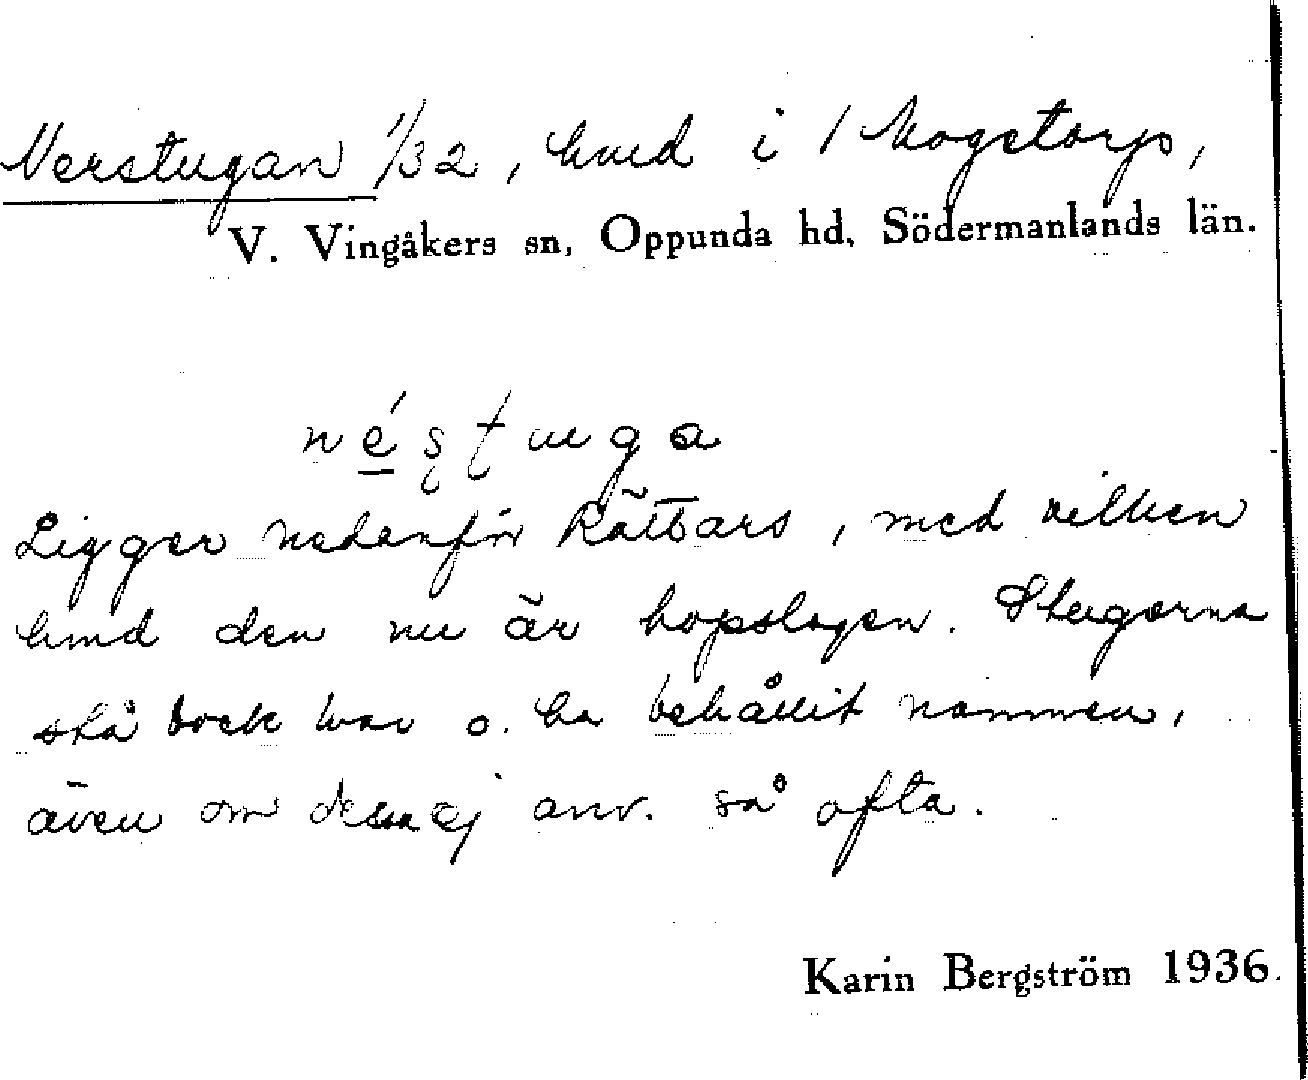 Nerstugan 1/32, hmd i / Mogetorp,
V. Vingåkers sn, Oppunda hd, Södermanlands län.
néstuga
Ligger nedanför Rättars, med vilken
hmd den nu är hopslagen. Stugorna
stå dock kvar o. ha behållit namnen,
även om dessa ej anv. så ofta.
Karin Bergström 1936.